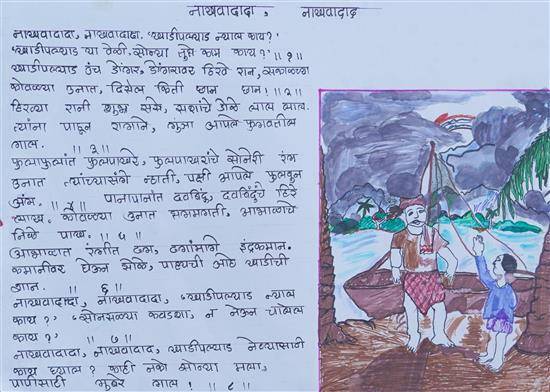 नाखवादादा, नाखवादादा
नाखवादादा, नाखवादादा, 'खाडीपल्याड न्याल काय?'
'खाडीपल्याड या वेळी. सोन्या तुझे काम काय?' ॥ १ ॥
खाडीपल्याड उंच डोंगर, डोंगरावर हिरवे रान, सकाळच्या
कोवळ्या उनात, दिसेल किती छान छान! ॥ २ ॥
हिरव्या रानी शुभ्र ससे, सशांचे डोळे लाल लाल.
त्यांना पाहून रागाने, गुंजा आपले फुगवतील
गाल. ॥ ३ ॥
फुलाफुलांत फुलपाखरे, फुलपाखरांचे सोनेरी रंग
उनात त्यांच्यासंगे न्हाती, पक्षी आपले फुलवून
अंग. ॥ ४ ॥ पानापानांत दवबिंदू, दवबिंदूंचे हिरे
लाख. कोवळ्या उनात झगमगती, आभाळाचे
निळे पाख. ॥ ५ ॥
आभाळात रंगीत ढग, ढगांमागे इंद्रकमान.
कमानीवर घेऊन झोले, पाहायची आहे खाडीची
शान. ॥ ६ ॥
नाखवादादा, नाखवादादा, 'खाडीपल्याड न्याल
काय?' 'सोनसळ्या कवड्या, न नेऊन चालेल
काय?' ॥ ७ ॥
नाखवादादा, नाखवादादा, खाडीपल्याड नेण्यासाठी
काय घ्याल? काही नको सोन्या मला,
पापीसाठी गाल! ॥ ८ ॥